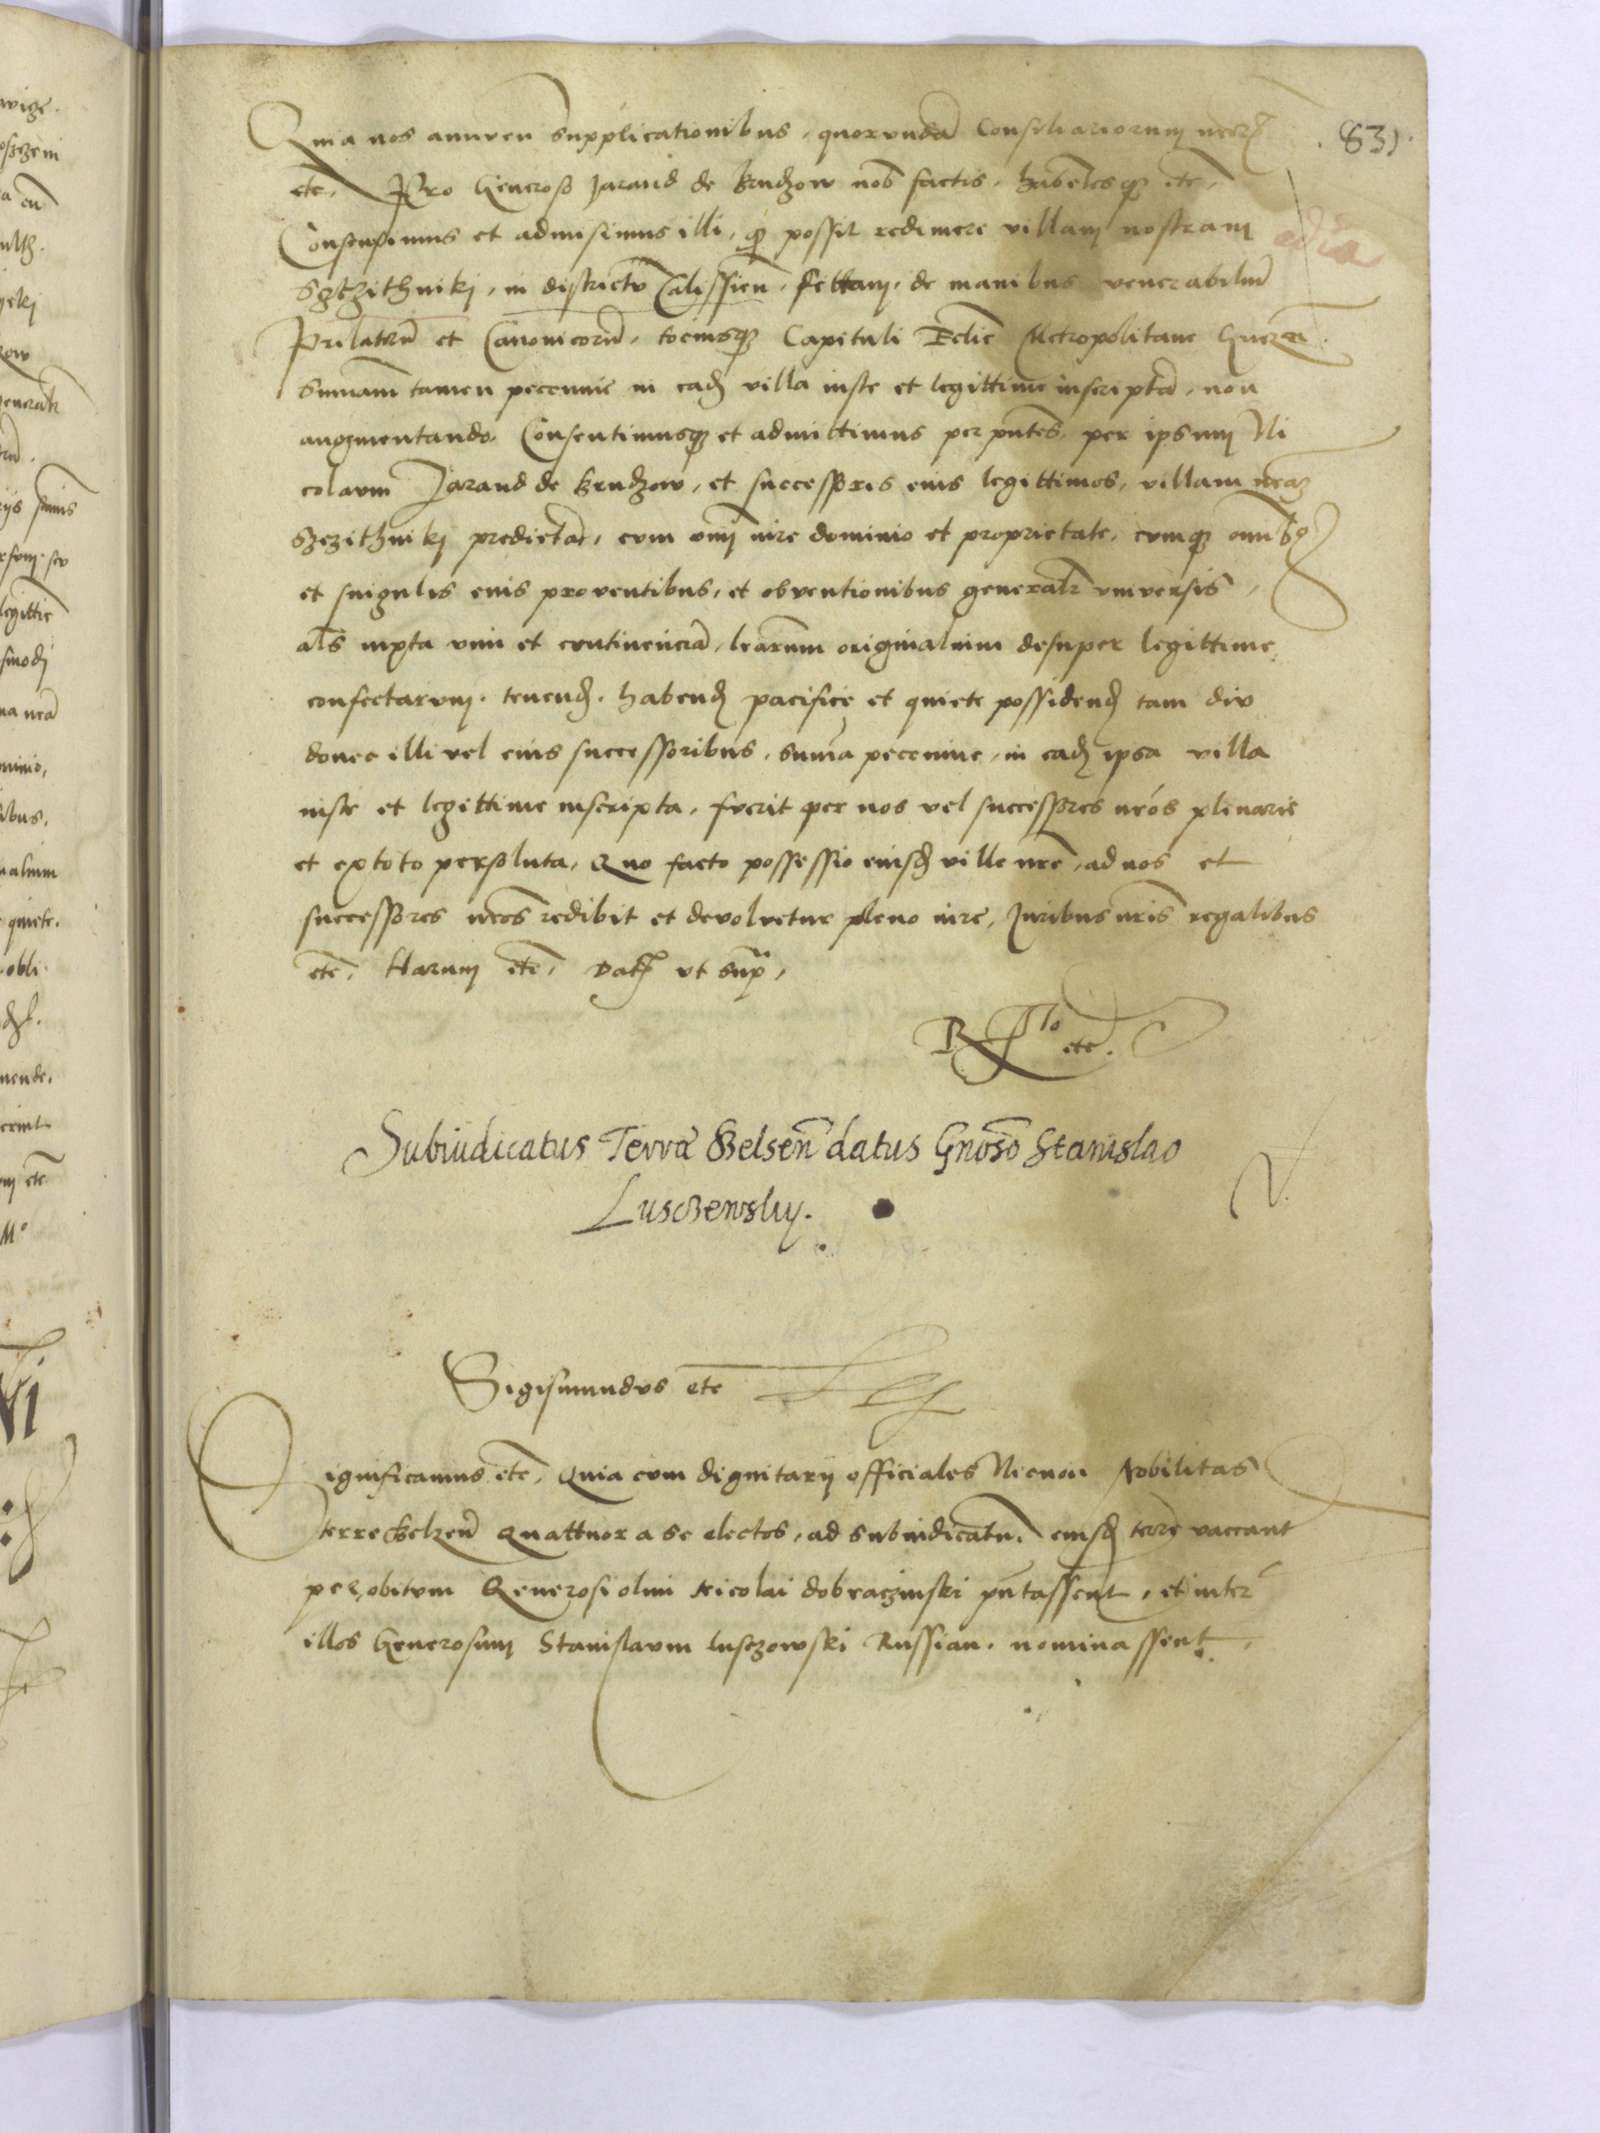 83)
Quia nos annuen supplicationibus, quorunda Consiliariorum nror
etc, Pro Generoso Jarand de Brudzow nob factis, habentesq etc,
Consensimus et admisimus illi, q possit redimere villam nostram
Szczithniki, in districtu Calissien, de manibus venerabiliu
Prilatoru et Canonicoru, tociusq Capituli Eclie Metropolitane Gnezn
Sumam tamen pecunie in ead villa iuste et legittime inscripta, non
augmentando. Consentimusq et admittimus per pntes, per ipsum Ni
colaum Jarand de Brudzow, et successores eius legittimos, villam nram
Szczithniki predictam, cum omni iure dominio et proprietate, cumq omibs
et singulis eius proventibus, et obventionibus generalr vniversis,
als iuxta vim et continencia, lrarum originalium desuper legittime
confectarum, tenend, habend pacifice et quiete possidend tam diu
donec illi vel eius successoribus, suma pecunie, in ead ipsa villa
iuste et legittime inscripta, fuerit per nos vel successores nros plenarie
et extoto persoluta, Quo facto possessio eiusd ville nre, ad nos et
successores nros redibit et devolvetur pleno iure, Juribus nris regalibus
etc, Harum etc, Dat ut supra,
Rlo etc.
Subiudicatus Terræ Belsen datus Gnoso Stanislao
Lusczewsky.
Sigismundus etc
Significamus etc, Quia cum dignitarij officiales Nicnon Nobilitas
terre Belzen Quattuor a se electos, ad subiudicatu, eiusd terre vaccant
per obitum Generosi olim Nicolai dobraczinski pntassent, et inter
illos Generosum Stanislaum lusczowski Russian, nominassent,